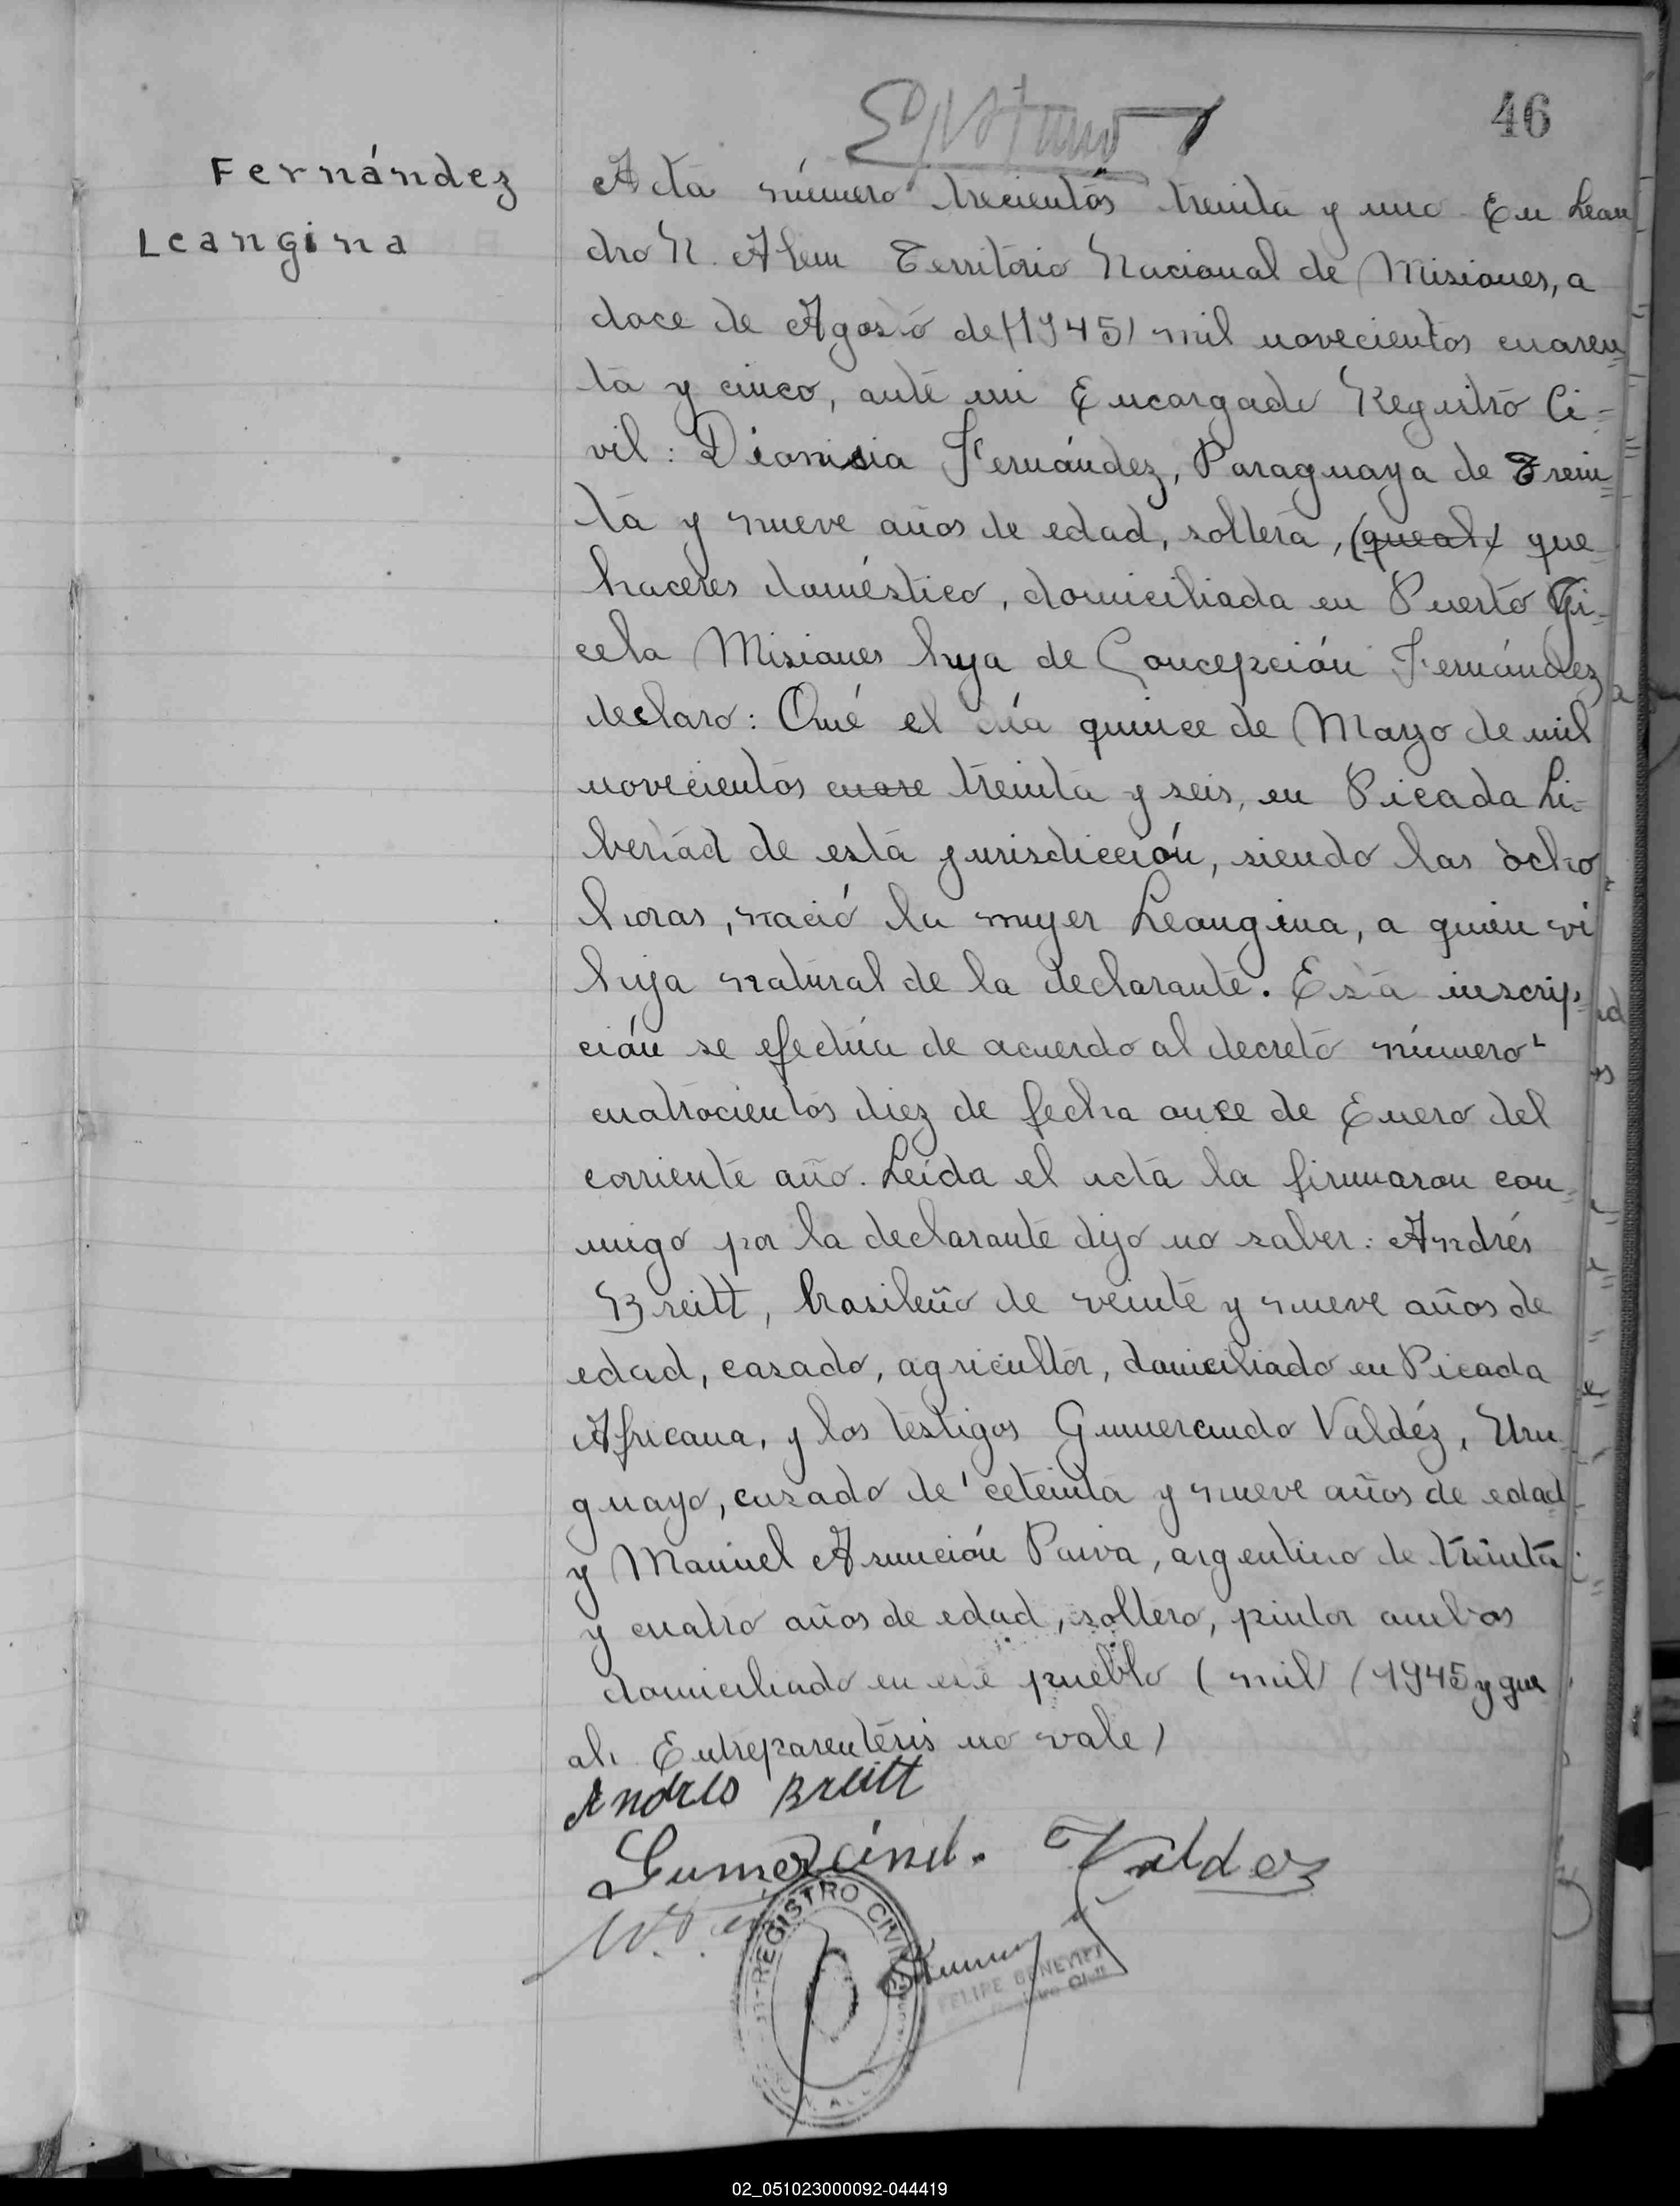 46
Fernández
Leangina
Acta número trecientos treinta y uno En Lean
dro N. Alem Territorio Nacional de Misiones, a
doce de Agosto de (1945) mil novecientos cuaren=
ta y cinco, ante mi Encargado Registro Ci-
vil: Dionisia Fernández, Paraguaya de Trein=
ta y nueve años de edad, soltera, (queal) que
haceres doméstico, domiciliada en Puerto Gi-
cela Misiones hija de Concepción Fernández
declaro: Qué el día quince de Mayo de mil
novecientos cuare treinta y seis, en Picada Li-
bertad de esta jurisdicción, siendo las ocho
horas, nació la mujer Leangina, a quien vi
hija natural de la declarante. Esta inscrip=
ción se efectúa de acuerdo al decreto número
cuatrocientos diez de fecha once de Enero del
corriente año. Leída el acta la firmaron con=
migo por la declarante dijo no saber: Andrés
Breitt, brasileño de veinte y nueve años de
edad, casado, agricultor, domiciliado en Picada
Africana, y los testigos Gumercindo Valdéz, Uru=
guayo, casado de ceteinta y nueve años de edad
y Manuel Asunción Paiva, argentino de treinta
y cuatro años de edad, soltero, pintor ambos
domiciliado en ese pueblo (mil (1945 y que
al. Entreparentésis no vale)
Andres Breitt
Gumercind. Valdez
REGISTRO CIVIL
FELIPE
02_051023000092-044419